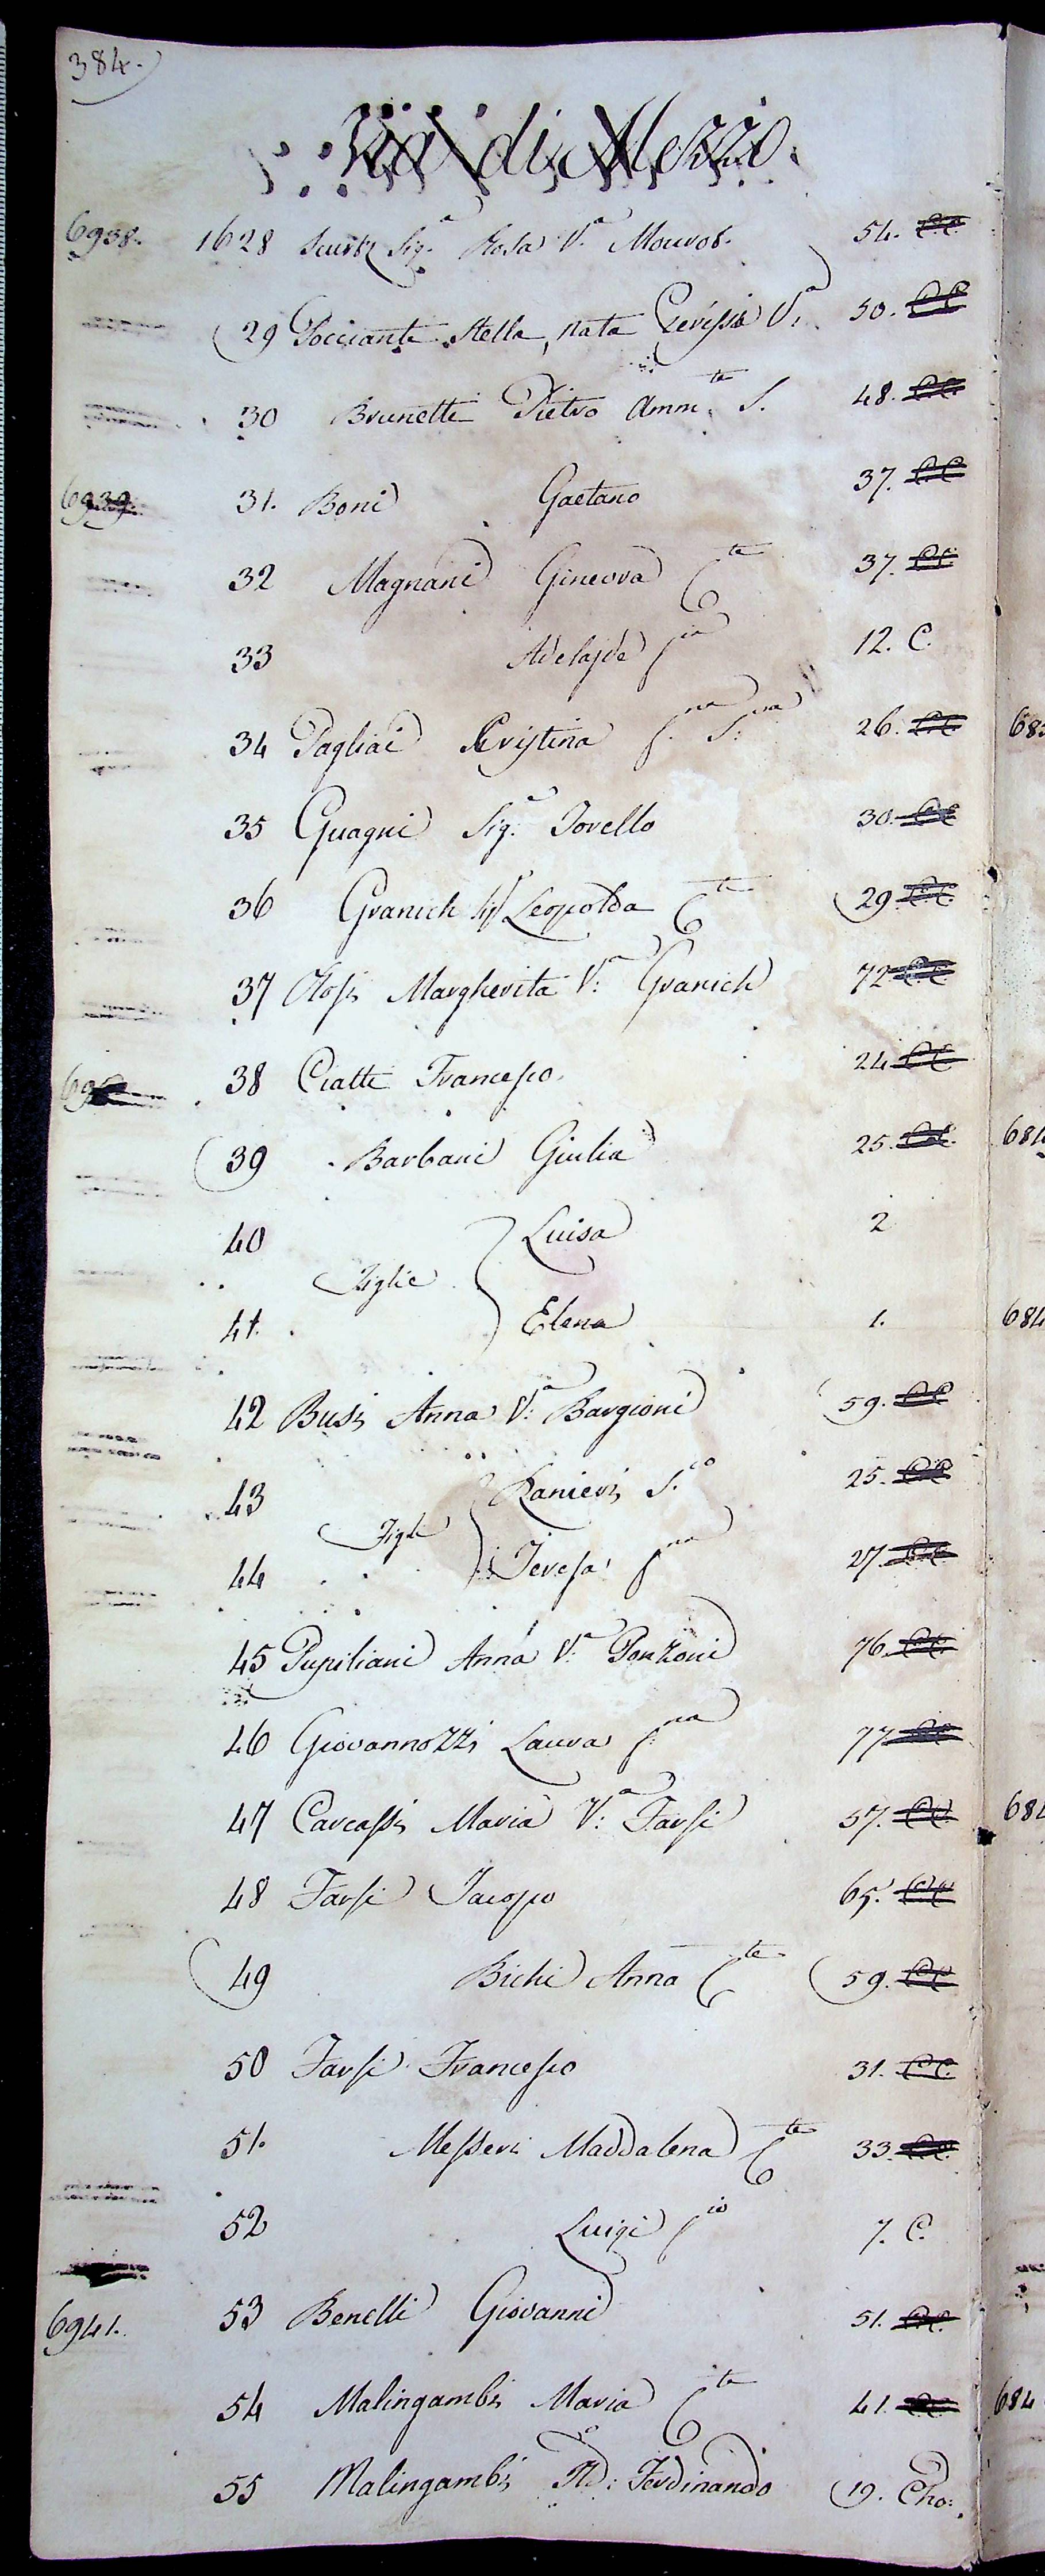 384.
Via di Mezzo.
6938. 1628 Sig.a Rosa V.a 54. C.C.
29 Stella, nata V.a 50. C.C.
30 Brunetti Pietro Amm.te S. 48. C.C.
6939. 31. Boni Gaetano 37. C.C.
32 Magnani Ginevra C.te 37. C.C.
33 Adelajde f.ia 12. C.
34 Pagliai Cristina f.na S.na 26. C.C.
35 Guagni Sig.e 30. C.C.
36 Granich Leopolda C.te 29. C.C.
37 Margherita V.a Granich 72 C.C.
38 Ciatti Francesco. 24. C.C.
39 Barbani Giulia 25. C.C.
40 Luisa 2
Figlie
41. Elena 1.
42 Busi Anna V.a Bargioni 59. C.C.
43 Ranieri S.co 25. C.C.
Figli
44 Teresa f.na 27. C.C.
45 Pupiliani Anna V.a Ponzoni 76. C.C.
46 Giovannozzi Laura f.na 77 C.C.
47 Carcassi Maria V.a Farsi 57. C.C.
48 Farsi Jacopo 65. C.C.
49 Bichi Anna C.te 59. C.C.
50 Farsi Francesco 31. C.C.
51. Messeri Maddalena C.te 33. C.C.
52 Luigi f.io 7. C.
6941. 53 Benelli Giovanni 51. C.C.
54 Malingambi Maria C.te 41. C.C.
55 Malingambi Ferdinando 19. Cho: